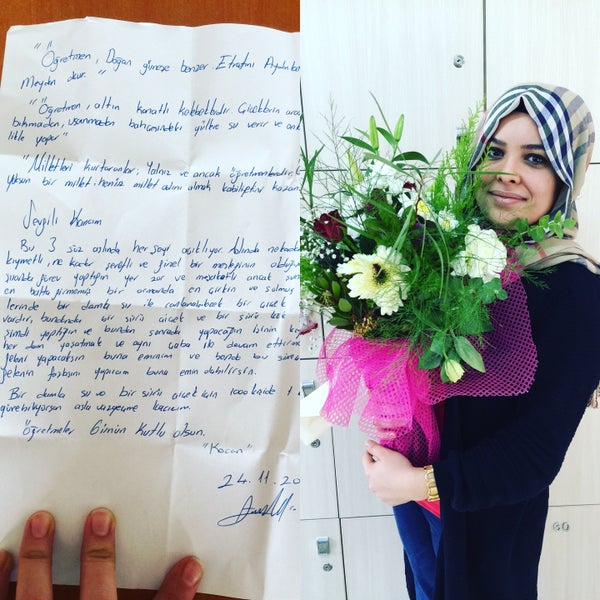 "Öğretmen, Doğan güneşe benzer. Etrafını Aydınlatan
Meydan okur."
"Öğretmen, altın kanatlı kelebektir. Çiçeklerin
bıkmadan, usanmadan bahçesindeki güllere su verir ve
yapar"
"Milletleri kurtaranlar, Yalnız ve ancak öğretmenlerdir,
yoksun bir millet, henüz millet adını almak kabiliyetini
Sevgili Karıcım
Bu 3 söz aslında her şeyi açıklıyor. Aslında ne kadar
kıymetli, ne kadar şerefli ve güzel bir mesleğinin olduğun
görev yaptığın yer zor ve meşakatli ancak
en girmemiş bir ormanda en çirkin ve solmuş
lerinde bir damla su ile canlanabilecek bir çiçek
vardır, bundandır bir sürü çiçek ve bir sürü
Şimdi yaptığın ve bundan sonrada yapacağın binin
her dem yaşatmak ve aynı çaba ile devam
yapacaksın buna eminim ve bende
fazlasını yapıcam buna emin olabilirsin.
Bir damla su ve bir sürü çiçek için 1000
asla vazgeçme karıcım.
Öğretmeler Günün Kutlu olsun.
"Kocan"
24.11.20